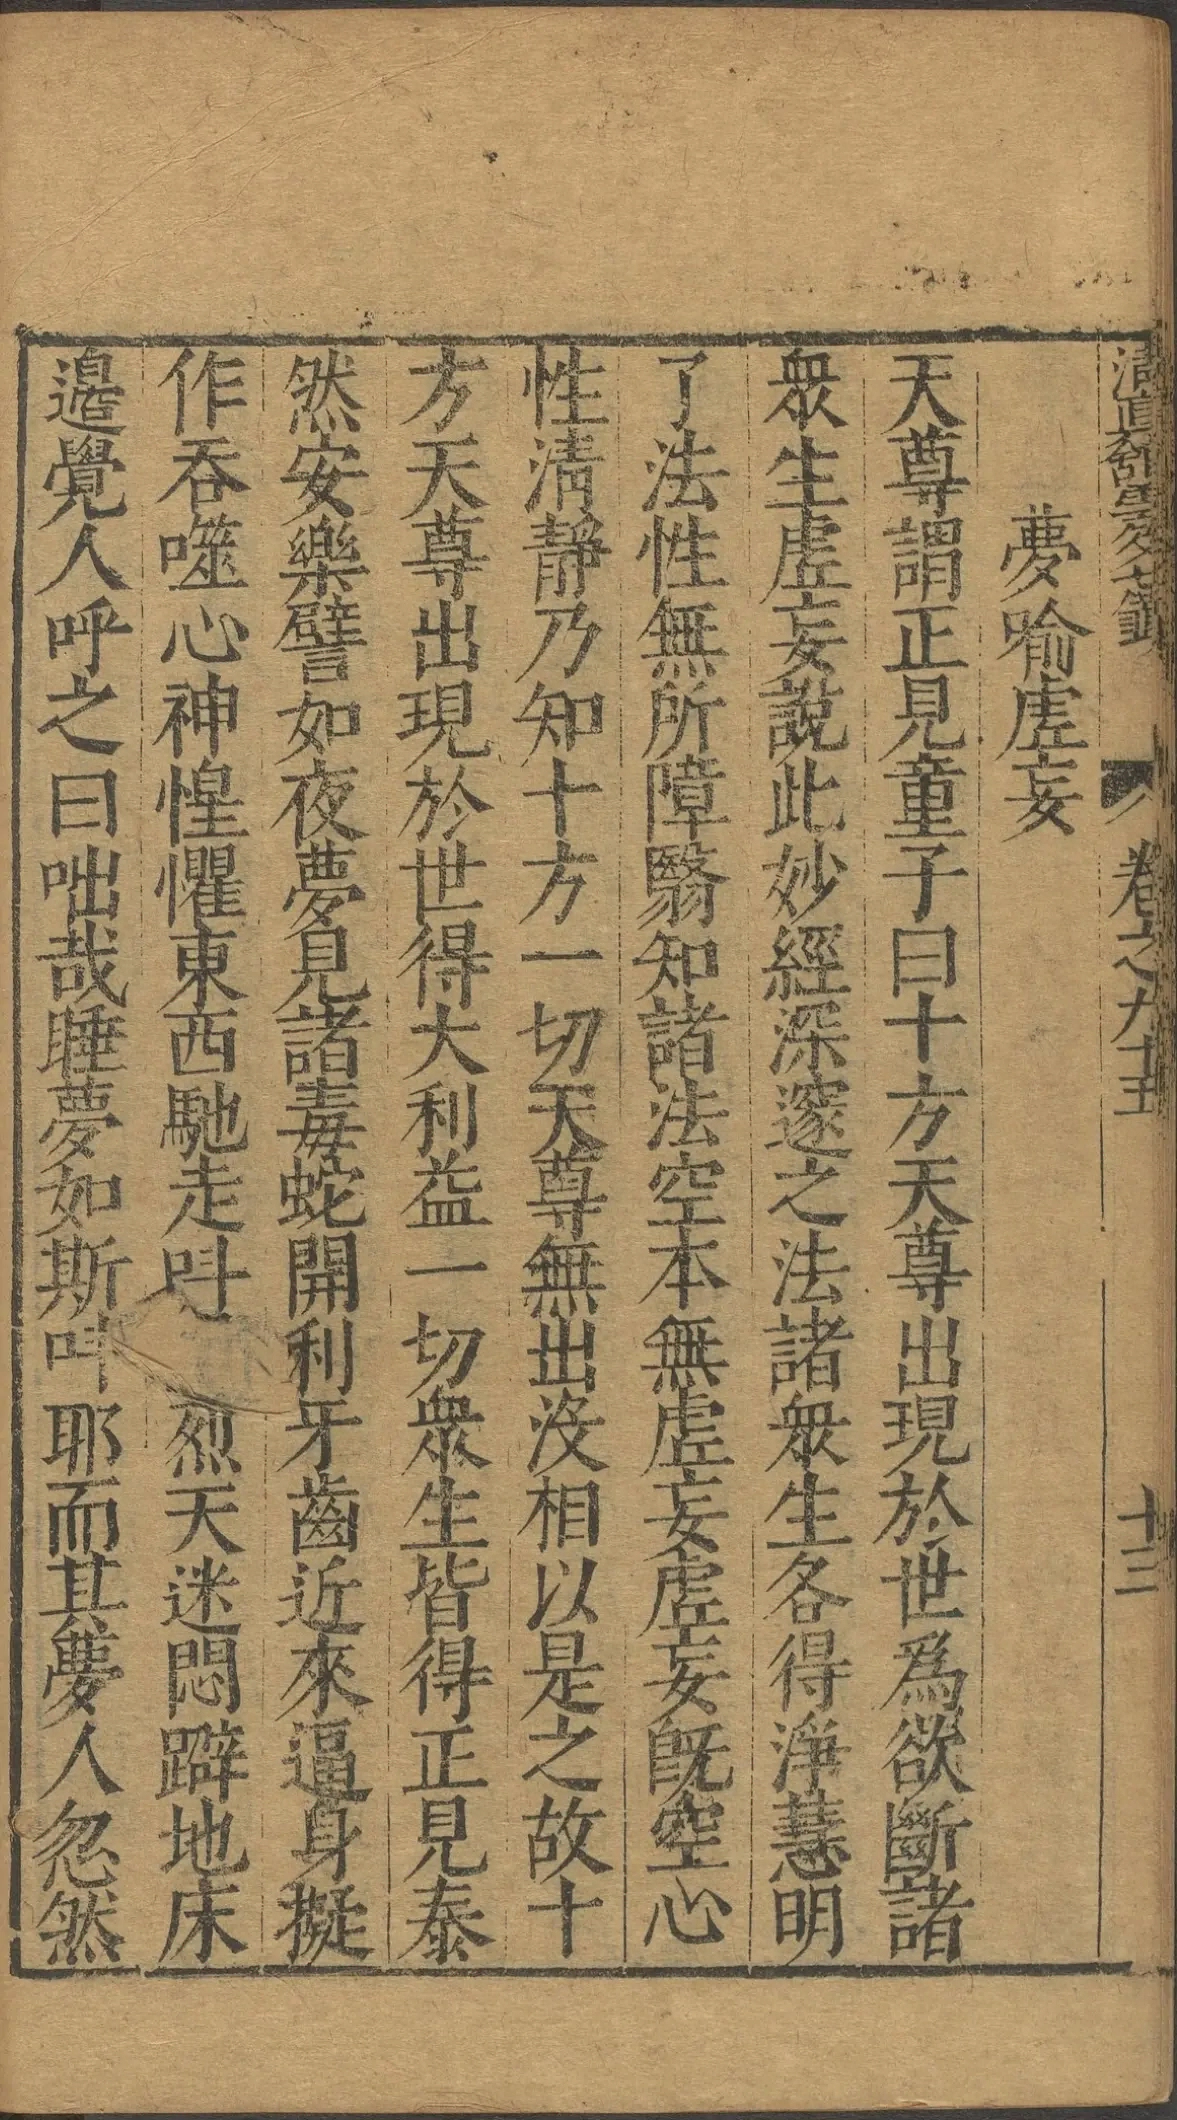 清真釋疑補輯 卷之九十五 十三
夢喻虛妄
天尊謂正見童子曰十方天尊出現於世爲欲斷諸
衆生虛妄說此妙經深邃之法諸衆生各得淨慧明
了法性無所障翳知諸法空本無虛妄虛妄旣空心
性淸靜乃知十方一切天尊無出沒相以是之故十
方天尊出現於世得大利益一切衆生皆得正見泰
然安樂譬如夜夢見諸毒蛇開利牙齒近來逼身擬
作吞噬心神惶懼東西馳走呌烈天迷悶躃地床
邉覺人呼之曰咄哉睡夢如斯呌耶而其夢人忽然